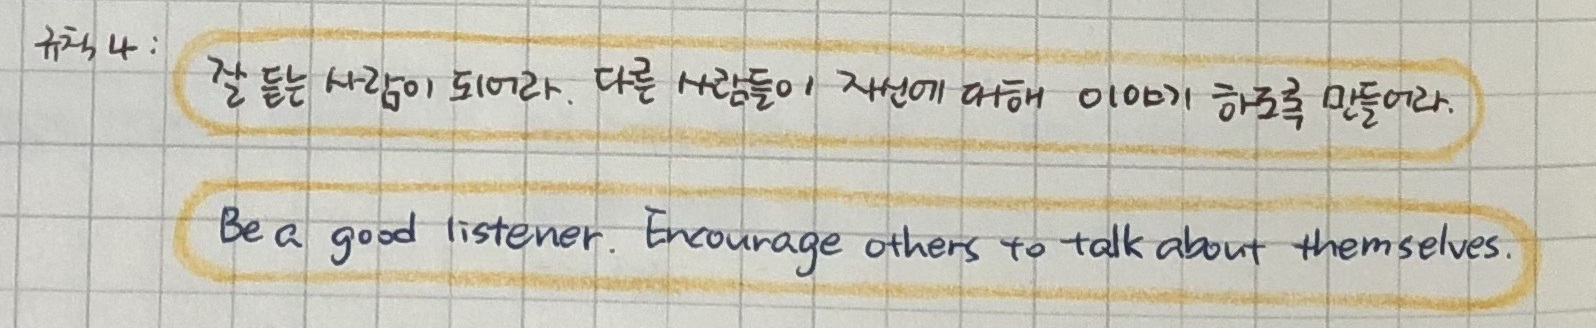 규칙 4: 잘 듣는 사람이 되어라. 다른 사람들이 자신에 대해 이야기 하도록 만들어라.
Be a good listener. Encourage others to talk about themselves.